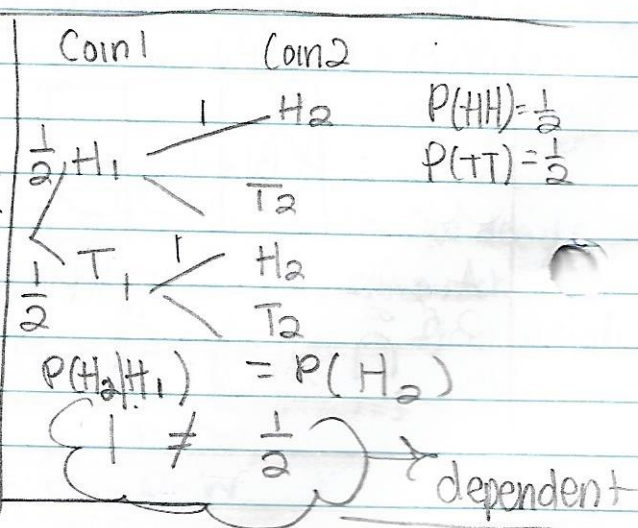 Coin1 Coin2
1 H2 P(HH)=1/2
1/2 H1 P(TT)=1/2
T2
T1 1 H2
1/2 T2
P(H2|H1) = P(H2)
1 ≠ 1/2 → dependent